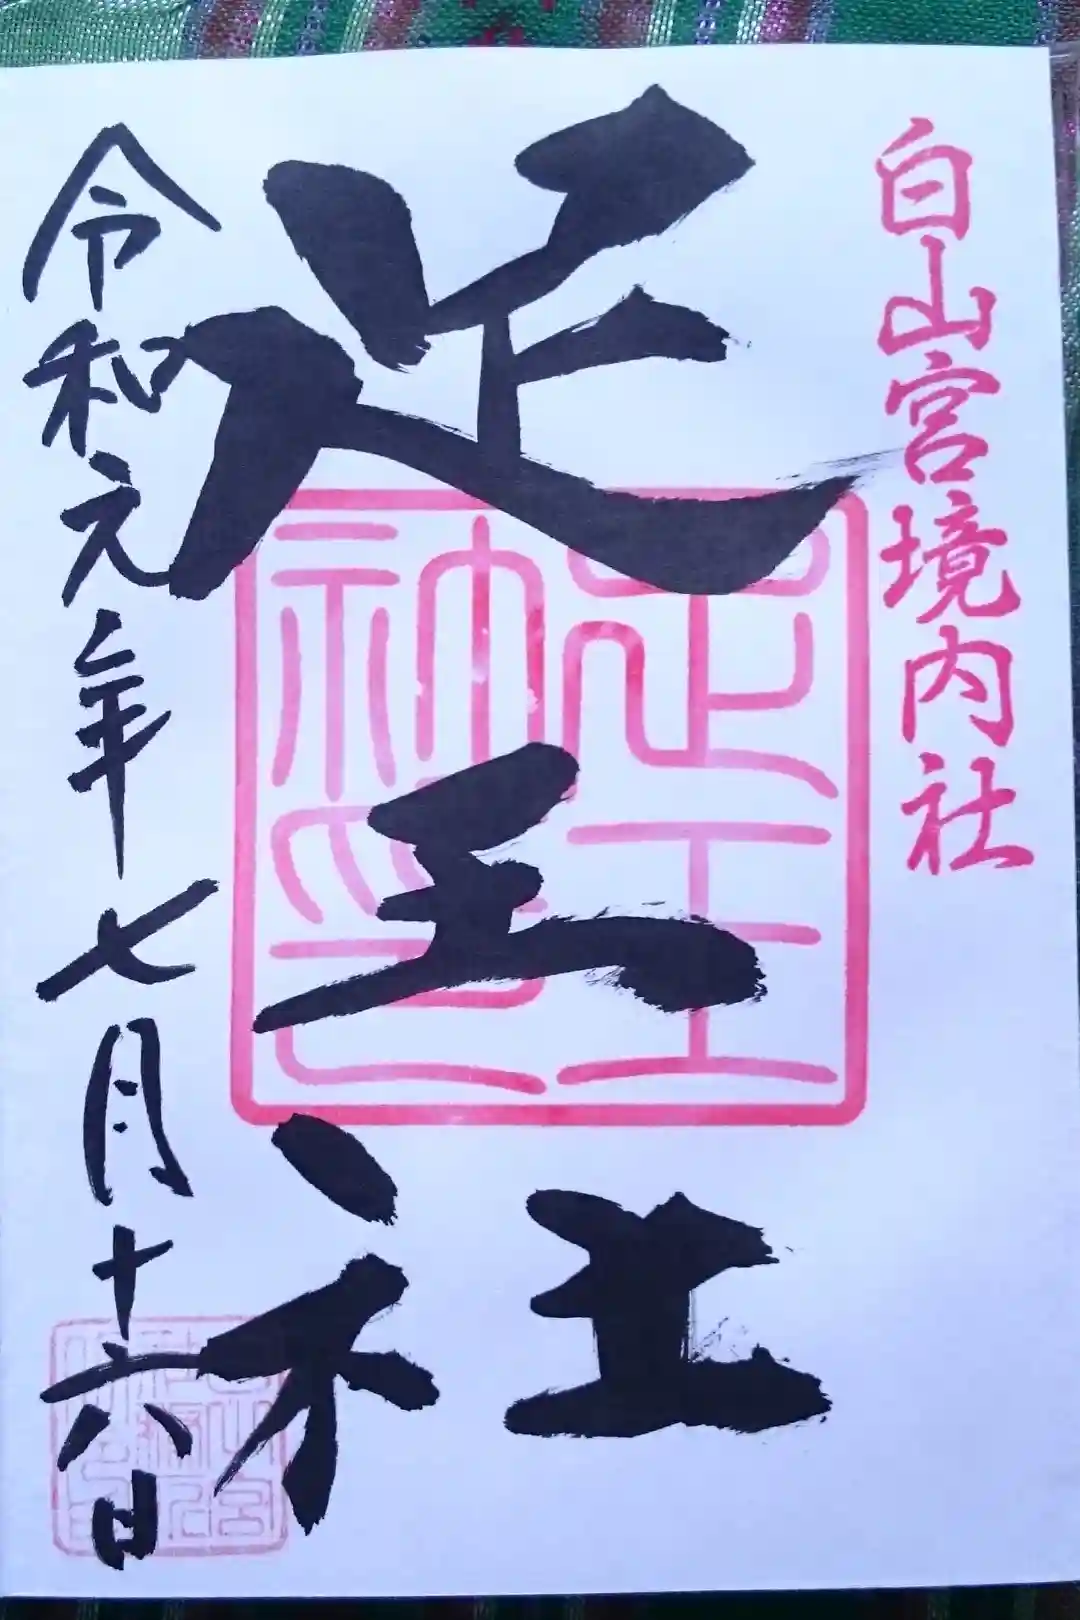 白山宮境内社
足王社
令和元年七月十六日